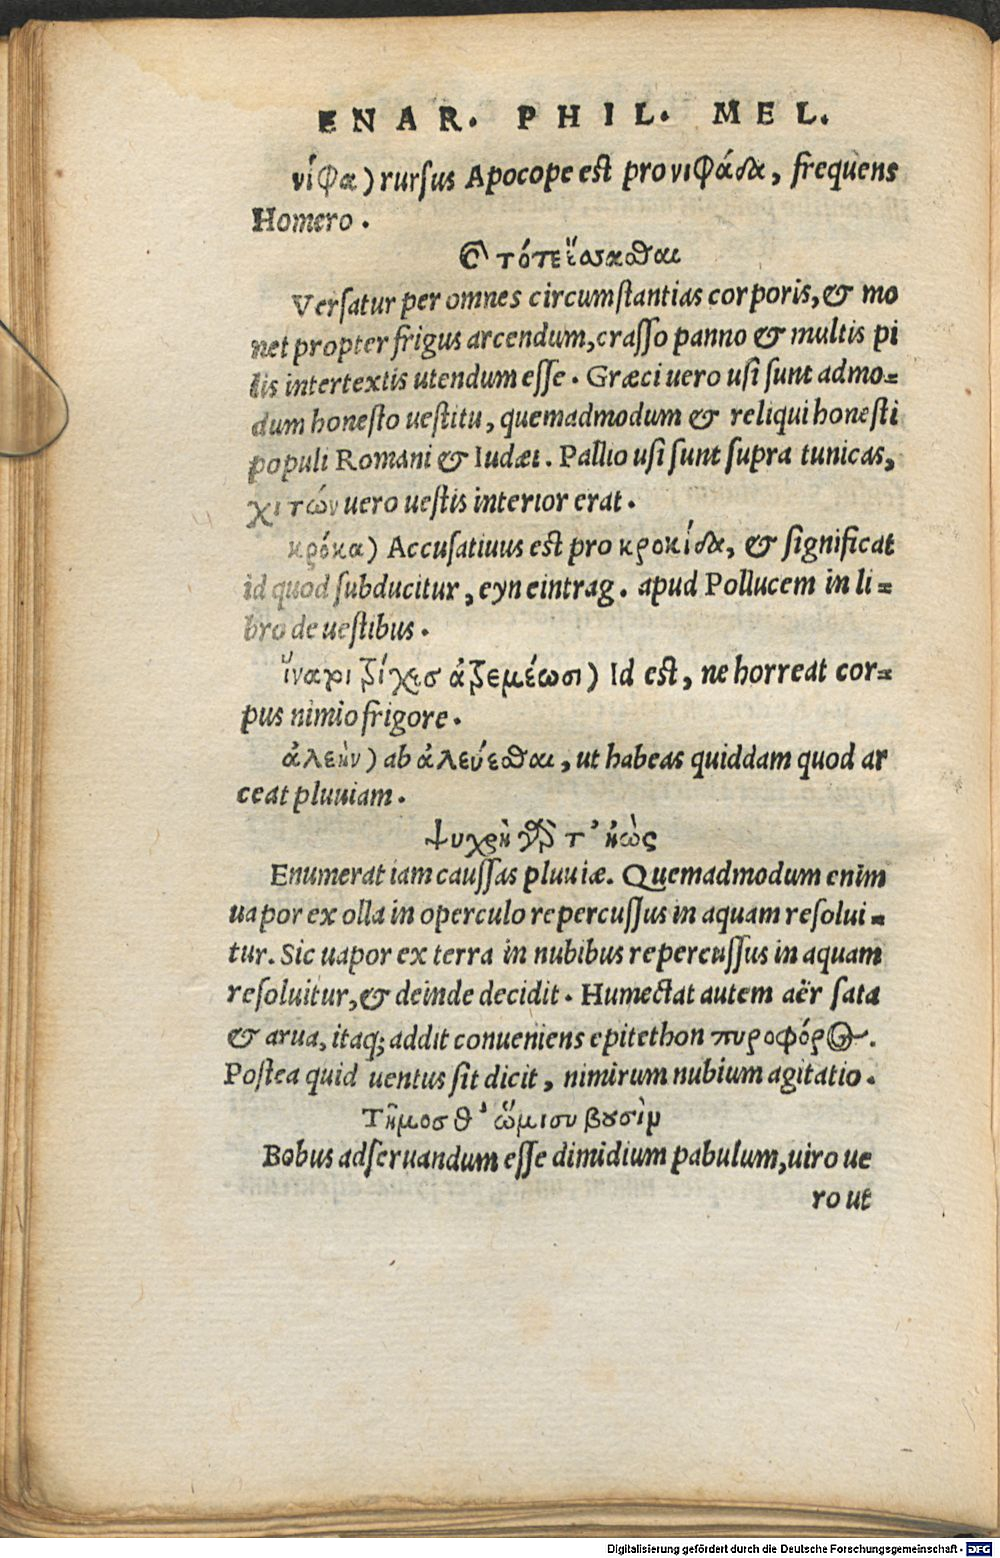 ENAR. PHIL. MEL.
νίφα) rursus Apocope est pro νιφάδα, frequens
Homero.
Καὶ τότε ἕσσασθαι
Versatur per omnes circumstantias corporis, & mo
net propter frigus arcendum, crasso panno & multis pi
lis intertextis utendum esse. Græci uero usi sunt admo=
dum honesto uestitu, quemadmodum & reliqui honesti
populi Romani & Iudæi. Pallio usi sunt supra tunicas,
χιτών uero uestis interior erat.
κρόκα) Accusatiuus est pro κροκίδα, & significat
id quod subducitur, eyn eintrag. apud Pollucem in li=
bro de uestibus.
ἵνα τρίχες ἀτρεμέωσι) Id est, ne horreat cor=
pus nimio frigore.
ἀλεὴν) ab ἀλεύεσθαι, ut habeas quiddam quod ar
ceat pluuiam.
ψυχρὴ γὰρ τ' ἠὼς
Enumerat iam caussas pluuiæ. Quemadmodum enim
uapor ex olla in operculo repercussus in aquam resolui=
tur. Sic uapor ex terra in nubibus repercussus in aquam
resoluitur, & deinde decidit. Humectat autem aër sata
& arua, itaq; addit conueniens epitethon πυροφόρος.
Postea quid uentus sit dicit, nimirum nubium agitatio.
Τῆμος θ' ὥμισυ βουσὶν
Bobus adseruandum esse dimidium pabulum, uiro ue
ro ut
Digitalisierung gefördert durch die Deutsche Forschungsgemeinschaft - DFG